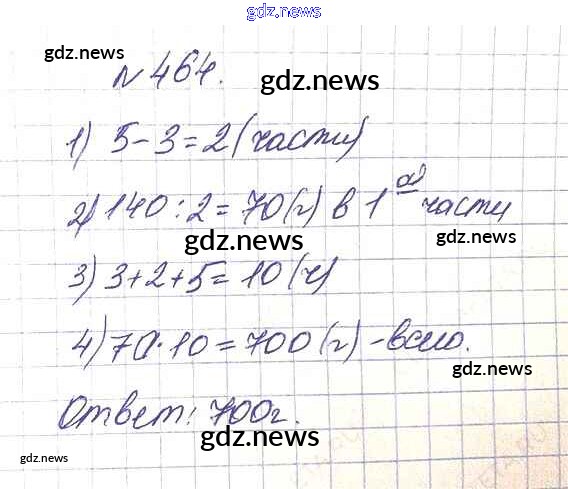 gdz.news
gdz.news
№ 464.
gdz.news
1) 5-3=2 (части)
2) 140:2=70(г) в 1ой части
gdz.news
gdz.news
3) 3+2+5=10 (ч)
gdz.news
4) 70·10=700(г) - всего.
gdz.news
Ответ: 700г.
gdz.news
gdz.news